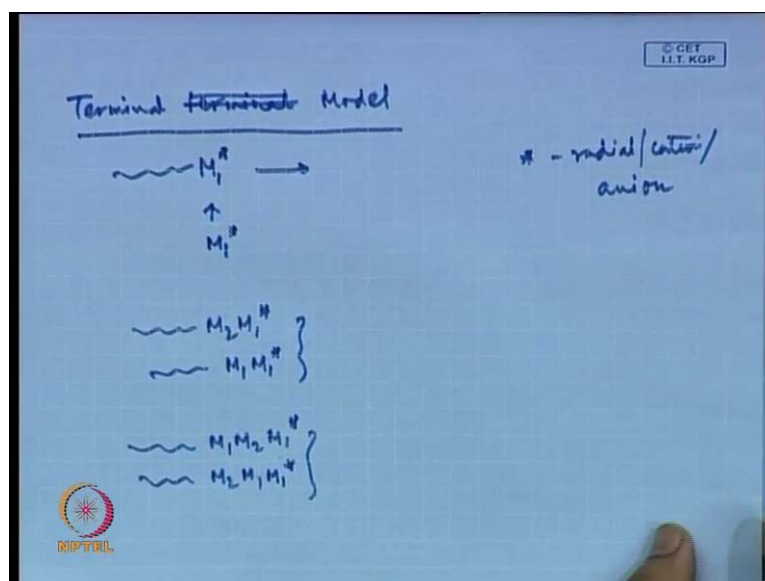 © CET
I.I.T. KGP
Terminal Model
M₁* ⟶
↑
M₁*
* - radial/cation/
anion
M₂M₁*
M₁M₁*
M₁M₂M₁*
M₂M₁M₁*
NPTEL